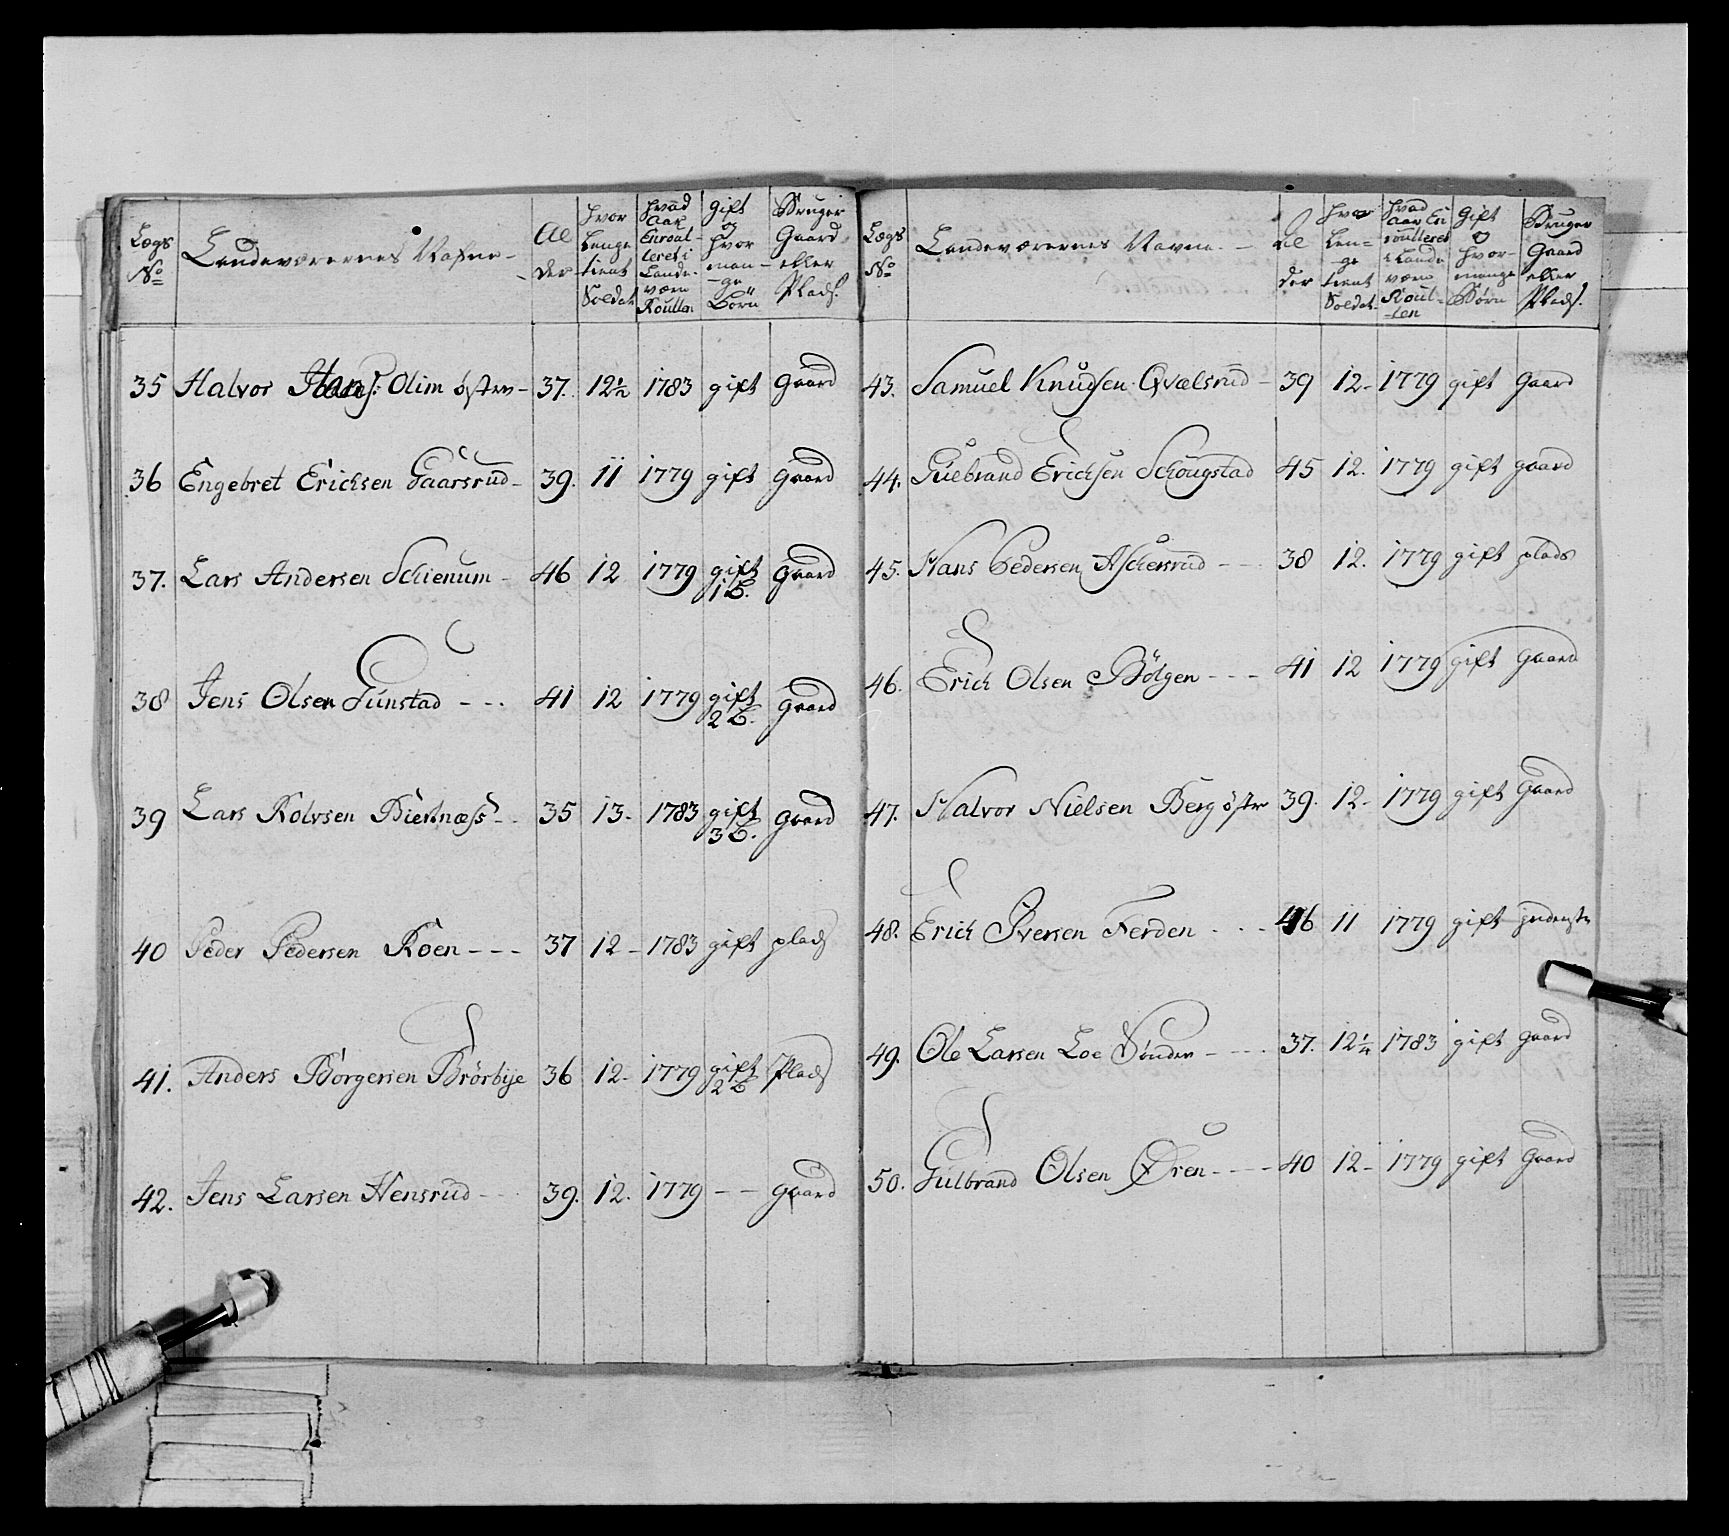 Lægs No | Landeværernes Nafne | Alder | Hvor Lenge tient Soldat | Hvad Aar Enroulleret i Landeværn Roullen | gift og Hvor mange Börn | Bruger Gaard eller Plads
35 Halvor Hans: Olim østre - 37. 12½ 1783 gift Gaard
36 Engebret Ericksen Gaarsrud - 39. 11 1779 gift Gaard
37. Lars Andersen Schienum - 46 12 1779 gift 1 B. Gaard
38 Jens Olsen Gunstad - - - 41 12 1779 gift 2 B. Gaard
39 Lars Rolvsen Biertnæss - - 35 13 - 1783 gift 3 B. Gaard
40 Peder Pedersen Roen - - - 37 12 - 1783 gift plads
41. Anders Borgersen Brørbye 36 12 - 1779 gift 2 B Plads
42. Jens Larsen Hensrud - - 39. 12. 1779 - - gaard
Lægs No | Landeværernes Navne. - | Alder | Hvor Lenge tient Soldat | Hvad Aar Enroulleret i Landeværn Roullen | Gift og Hvor mange Børn | Bruger Gaard eller Plads.
43. Samuel Knudsen Qvælsrud - 39 12 - 1779 gift Gaard
44. Gulbrand Erichsen Schougstad 45 12. 1779 gift gaard
45. Hans Pedersen Aschersrud - - 38 12. 1779 gift plads
46. Erich Olsen Bölgen - - - 41 12 1779 gift gaard
47. Halvor Nielsen Berg østr 39. 12 - 1779 gift Gaard
48. Erich Iversen Ferden - - - 46 11 1779 gift inderste
49. Ole Larsen Loe Sönder - - - 37. 12¼ 1783 gift gaard
50. Gulbrand Olsen Øren - - - - 40 12 - 1779 gift Gaard